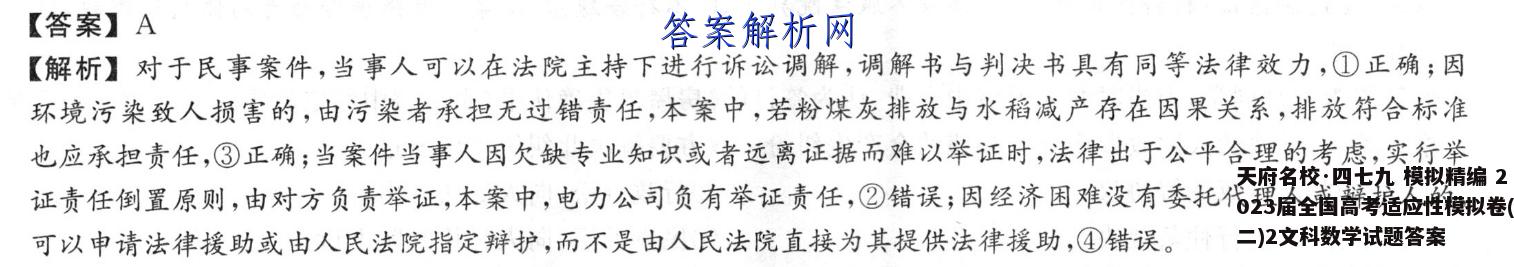 【答案】A
答案解析网
【解析】对于民事案件,当事人可以在法院主持下进行诉讼调解,调解书与判决书具有同等法律效力,①正确;因
环境污染致人损害的,由污染者承担无过错责任,本案中,若粉煤灰排放与水稻减产存在因果关系,排放符合标准
也应承担责任,③正确;当案件当事人因欠缺专业知识或者远离证据而难以举证时,法律出于公平合理的考虑,实行举
证责任倒置原则,由对方负责举证,本案中,电力公司负有举证责任,②错误;因经济困难没有委托代理人或辩护人的,
可以申请法律援助或由人民法院指定辩护,而不是由人民法院直接为其提供法律援助,④错误。
天府名校·四七九 模拟精编 2
023届全国高考适应性模拟卷(
二)2文科数学试题答案